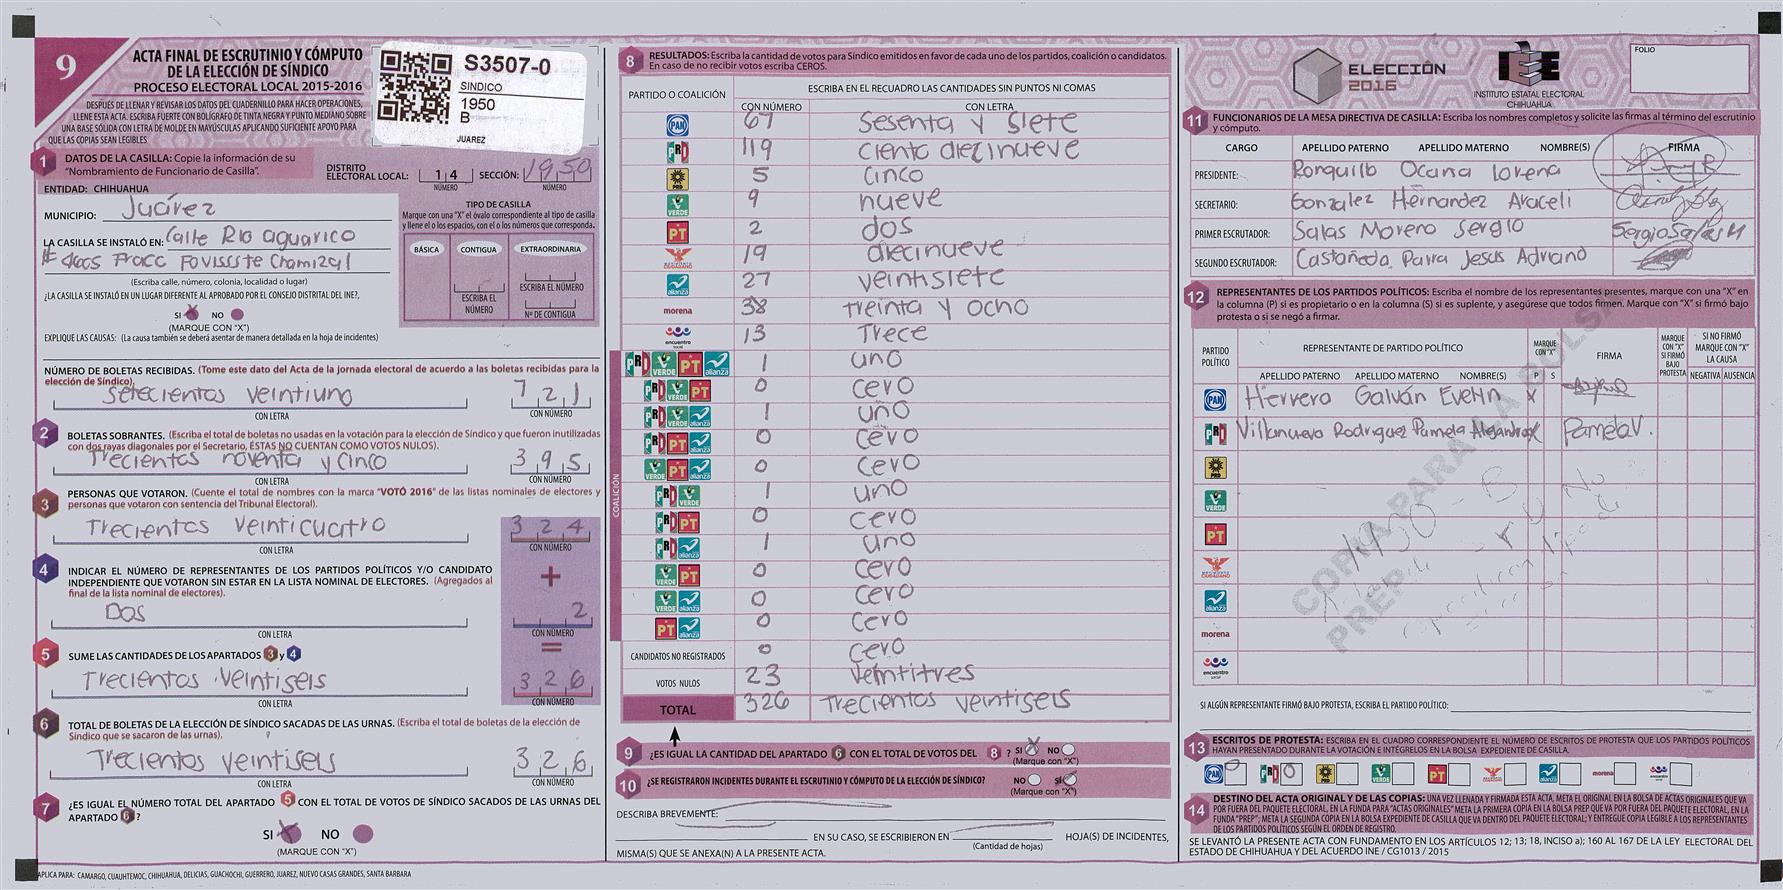 9
ACTA FINAL DE ESCRUTINIO Y CÓMPUTO
DE LA ELECCIÓN DE SÍNDICO
PROCESO ELECTORAL LOCAL 2015-2016
DESPUÉS DE LLENAR Y REVISAR LOS DATOS DEL CUADERNILLO PARA HACER OPERACIONES,
LLENE ESTA ACTA. ESCRIBA FUERTE CON BOLÍGRAFO DE TINTA NEGRA Y PUNTO MEDIANO SOBRE
UNA BASE SÓLIDA CON LETRA DE MOLDE EN MAYÚSCULAS APLICANDO SUFICIENTE APOYO PARA
QUE LAS COPIAS SEAN LEGIBLES
S3507-0
SINDICO
1950
B
JUAREZ
1 DATOS DE LA CASILLA: Copie la información de su
"Nombramiento de Funcionario de Casilla".
DISTRITO ELECTORAL LOCAL: 14 NÚMERO SECCIÓN: 1950 NÚMERO
ENTIDAD: CHIHUAHUA
MUNICIPIO: Juárez
LA CASILLA SE INSTALÓ EN: Calle Rio aguarico
# 4605 Fracc Fovissste Chamizal
(Escriba calle, número, colonia, localidad o lugar)
¿LA CASILLA SE INSTALÓ EN UN LUGAR DIFERENTE AL APROBADO POR EL CONSEJO DISTRITAL DEL INE?,
SI X NO
(MARQUE CON "X")
EXPLIQUE LAS CAUSAS: (La causa también se deberá asentar de manera detallada en la hoja de incidentes)
TIPO DE CASILLA
Marque con una "X" el óvalo correspondiente al tipo de casilla
y llene el o los espacios, con el o los números que corresponda.
BÁSICA CONTIGUA EXTRAORDINARIA
ESCRIBA EL NÚMERO
ESCRIBA EL NÚMERO
Nº DE CONTIGUA
NÚMERO DE BOLETAS RECIBIDAS. (Tome este dato del Acta de la jornada electoral de acuerdo a las boletas recibidas para la
elección de Síndico).
Setecientos veintiuno 721
CON LETRA CON NÚMERO
2 BOLETAS SOBRANTES. (Escriba el total de boletas no usadas en la votación para la elección de Síndico y que fueron inutilizadas
con dos rayas diagonales por el Secretario, ÉSTAS NO CUENTAN COMO VOTOS NULOS).
Trecientos noventa y cinco 395
CON LETRA CON NÚMERO
3 PERSONAS QUE VOTARON. (Cuente el total de nombres con la marca "VOTÓ 2016" de las listas nominales de electores y
personas que votaron con sentencia del Tribunal Electoral).
Trecientos veinticuatro 324
CON LETRA CON NÚMERO
4 INDICAR EL NÚMERO DE REPRESENTANTES DE LOS PARTIDOS POLÍTICOS Y/O CANDIDATO
INDEPENDIENTE QUE VOTARON SIN ESTAR EN LA LISTA NOMINAL DE ELECTORES. (Agregados al
final de la lista nominal de electores).
+
Dos 2
CON LETRA CON NÚMERO
=
5 SUME LAS CANTIDADES DE LOS APARTADOS 3 y 4
Trecientos veintiseis 326
CON LETRA CON NÚMERO
6 TOTAL DE BOLETAS DE LA ELECCIÓN DE SÍNDICO SACADAS DE LAS URNAS. (Escriba el total de boletas de la elección de
Síndico que se sacaron de las urnas).
Trecientos veintiseis 326
CON LETRA CON NÚMERO
7 ¿ES IGUAL EL NÚMERO TOTAL DEL APARTADO 5 CON EL TOTAL DE VOTOS DE SÍNDICO SACADOS DE LAS URNAS DEL
APARTADO 6?
SI X NO
(MARQUE CON "X")
APLICA PARA: CAMARGO, CUAUHTEMOC, CHIHUAHUA, DELICIAS, GUACHOCHI, GUERRERO, JUAREZ, NUEVO CASAS GRANDES, SANTA BARBARA
8 RESULTADOS: Escriba la cantidad de votos para Síndico emitidos en favor de cada uno de los partidos, coalición o candidatos.
En caso de no recibir votos escriba CEROS.
PARTIDO O COALICIÓN ESCRIBA EN EL RECUADRO LAS CANTIDADES SIN PUNTOS NI COMAS
CON NÚMERO CON LETRA
PAN 67 Sesenta y siete
PRD 119 ciento diecinueve
PRD 5 cinco
VERDE 9 nueve
PT 2 dos
MOVIMIENTO CIUDADANO 19 diecinueve
alianza 27 veintisiete
morena 38 treinta y ocho
encuentro social 13 Trece
COALICIÓN
PRD VERDE PT alianza 1 uno
PRD VERDE PT 0 cero
PRD VERDE alianza 1 uno
PRD PT alianza 0 cero
VERDE PT alianza 0 cero
PRD VERDE 1 uno
PRD PT 0 cero
PRD alianza 1 uno
VERDE PT 0 cero
VERDE alianza 0 cero
PT alianza 0 cero
CANDIDATOS NO REGISTRADOS 0 cero
VOTOS NULOS 23 veintitres
TOTAL 326 Trecientos veintiseis
9 ¿ES IGUAL LA CANTIDAD DEL APARTADO 6 CON EL TOTAL DE VOTOS DEL 8 ? SI X NO
(Marque con "X")
10 ¿SE REGISTRARON INCIDENTES DURANTE EL ESCRUTINIO Y CÓMPUTO DE LA ELECCIÓN DE SÍNDICO? NO SÍ
(Marque con "X")
DESCRIBA BREVEMENTE:
EN SU CASO, SE ESCRIBIERON EN HOJA(S) DE INCIDENTES,
(Cantidad de hojas)
MISMA(S) QUE SE ANEXA(N) A LA PRESENTE ACTA.
ELECCIÓN
2016
IEE
INSTITUTO ESTATAL ELECTORAL
CHIHUAHUA
FOLIO
11 FUNCIONARIOS DE LA MESA DIRECTIVA DE CASILLA: Escriba los nombres completos y solicite las firmas al término del escrutinio
y cómputo.
CARGO APELLIDO PATERNO APELLIDO MATERNO NOMBRE(S) FIRMA
PRESIDENTE: Ronquillo Ocana Lorena
SECRETARIO: Gonzalez Hernandez Araceli
PRIMER ESCRUTADOR: Salas Moreno Sergio Sergio Salas M
SEGUNDO ESCRUTADOR: Castañeda Parra Jesus Adriano
12 REPRESENTANTES DE LOS PARTIDOS POLÍTICOS: Escriba el nombre de los representantes presentes, marque con una "X" en
la columna (P) si es propietario o en la columna (S) si es suplente, y asegúrese que todos firmen. Marque con "X" si firmó bajo
protesta o si se negó a firmar.
PARTIDO POLÍTICO REPRESENTANTE DE PARTIDO POLÍTICO MARQUE CON "X" FIRMA MARQUE CON "X" SI FIRMÓ BAJO PROTESTA SI NO FIRMÓ MARQUE CON "X" LA CAUSA
APELLIDO PATERNO APELLIDO MATERNO NOMBRE(S) P S NEGATIVA AUSENCIA
PAN Herrera Galván Evelin X
PRD Villanueva Rodriguez Pamela Alejandra X Pamela V.
PRD
VERDE
PT
MOVIMIENTO CIUDADANO
alianza
morena
encuentro social
COPIA PARA LA BOLSA
PREP
1950 - B
SI ALGÚN REPRESENTANTE FIRMÓ BAJO PROTESTA, ESCRIBA EL PARTIDO POLÍTICO:
13 ESCRITOS DE PROTESTA: ESCRIBA EN EL CUADRO CORRESPONDIENTE EL NÚMERO DE ESCRITOS DE PROTESTA QUE LOS PARTIDOS POLÍTICOS
HAYAN PRESENTADO DURANTE LA VOTACIÓN E INTÉGRELOS EN LA BOLSA EXPEDIENTE DE CASILLA.
PAN 0 PRD 0 PRD VERDE PT alianza morena encuentro social
14 DESTINO DEL ACTA ORIGINAL Y DE LAS COPIAS: UNA VEZ LLENADA Y FIRMADA ESTA ACTA, META EL ORIGINAL EN LA BOLSA DE ACTAS ORIGINALES QUE VA
POR FUERA DEL PAQUETE ELECTORAL, EN LA FUNDA PARA "ACTAS ORIGINALES" META LA PRIMERA COPIA EN LA BOLSA PREP QUE VA POR FUERA DEL PAQUETE ELECTORAL, EN LA
FUNDA "PREP"; META LA SEGUNDA COPIA EN LA BOLSA EXPEDIENTE DE CASILLA QUE VA DENTRO DEL PAQUETE ELECTORAL; Y ENTREGUE COPIA LEGIBLE A LOS REPRESENTANTES
DE LOS PARTIDOS POLÍTICOS SEGÚN EL ORDEN DE REGISTRO.
SE LEVANTÓ LA PRESENTE ACTA CON FUNDAMENTO EN LOS ARTÍCULOS 12; 13; 18, INCISO a); 160 AL 167 DE LA LEY ELECTORAL DEL
ESTADO DE CHIHUAHUA Y DEL ACUERDO INE / CG1013 / 2015